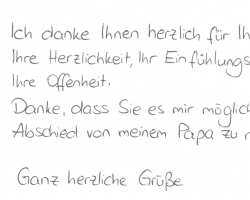 Ich danke Ihnen herzlich für Ih
Ihre Herzlichkeit, Ihr Einfühlungs
Ihre Offenheit.
Danke, dass Sie es mir möglic
Abschied von meinem Papa zu n
Ganz herzliche Grüße